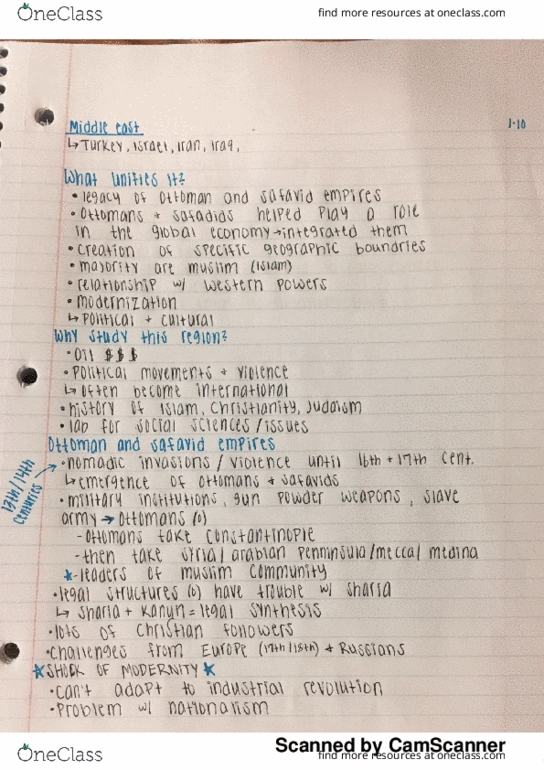 OneClass
find more resources at oneclass.com
Middle east
1-10
↳ Turkey, Israel, Iran, Iraq,
What unifies it?
• legacy of Ottoman and safavid empires
• Ottomans + safadids helped play a role
in the global economy → integrated them
• creation of specific geographic boundries
• majority are muslim (Islam)
• relationship w/ western powers
• modernization
↳ Political + cultural
Why study this region?
• Oil $ $ $
• Political movements + violence
↳ often become international
• history of Islam, Christianity, Judaism
• lab for social sciences / issues
Ottoman and safavid empires
• nomadic invasions / violence until 16th + 17th cent.
13th/14th
centuries
↳ emergence of Ottomans + safavids
• military institutions, gun powder weapons, slave
army → Ottomans (o)
- Ottomans take Constantinople
- then take syria / arabian penninsula / mecca / medina
* - leaders of muslim community
• legal structures (o) have trouble w/ sharia
↳ sharia + kanun = legal synthesis
• lots of Christian followers
• challenges from Europe (17th/18th) + Russians
* SHOCK OF MODERNITY *
• can't adapt to industrial revolution
• Problem w/ nationalism
Scanned by CamScanner
OneClass
find more resources at oneclass.com